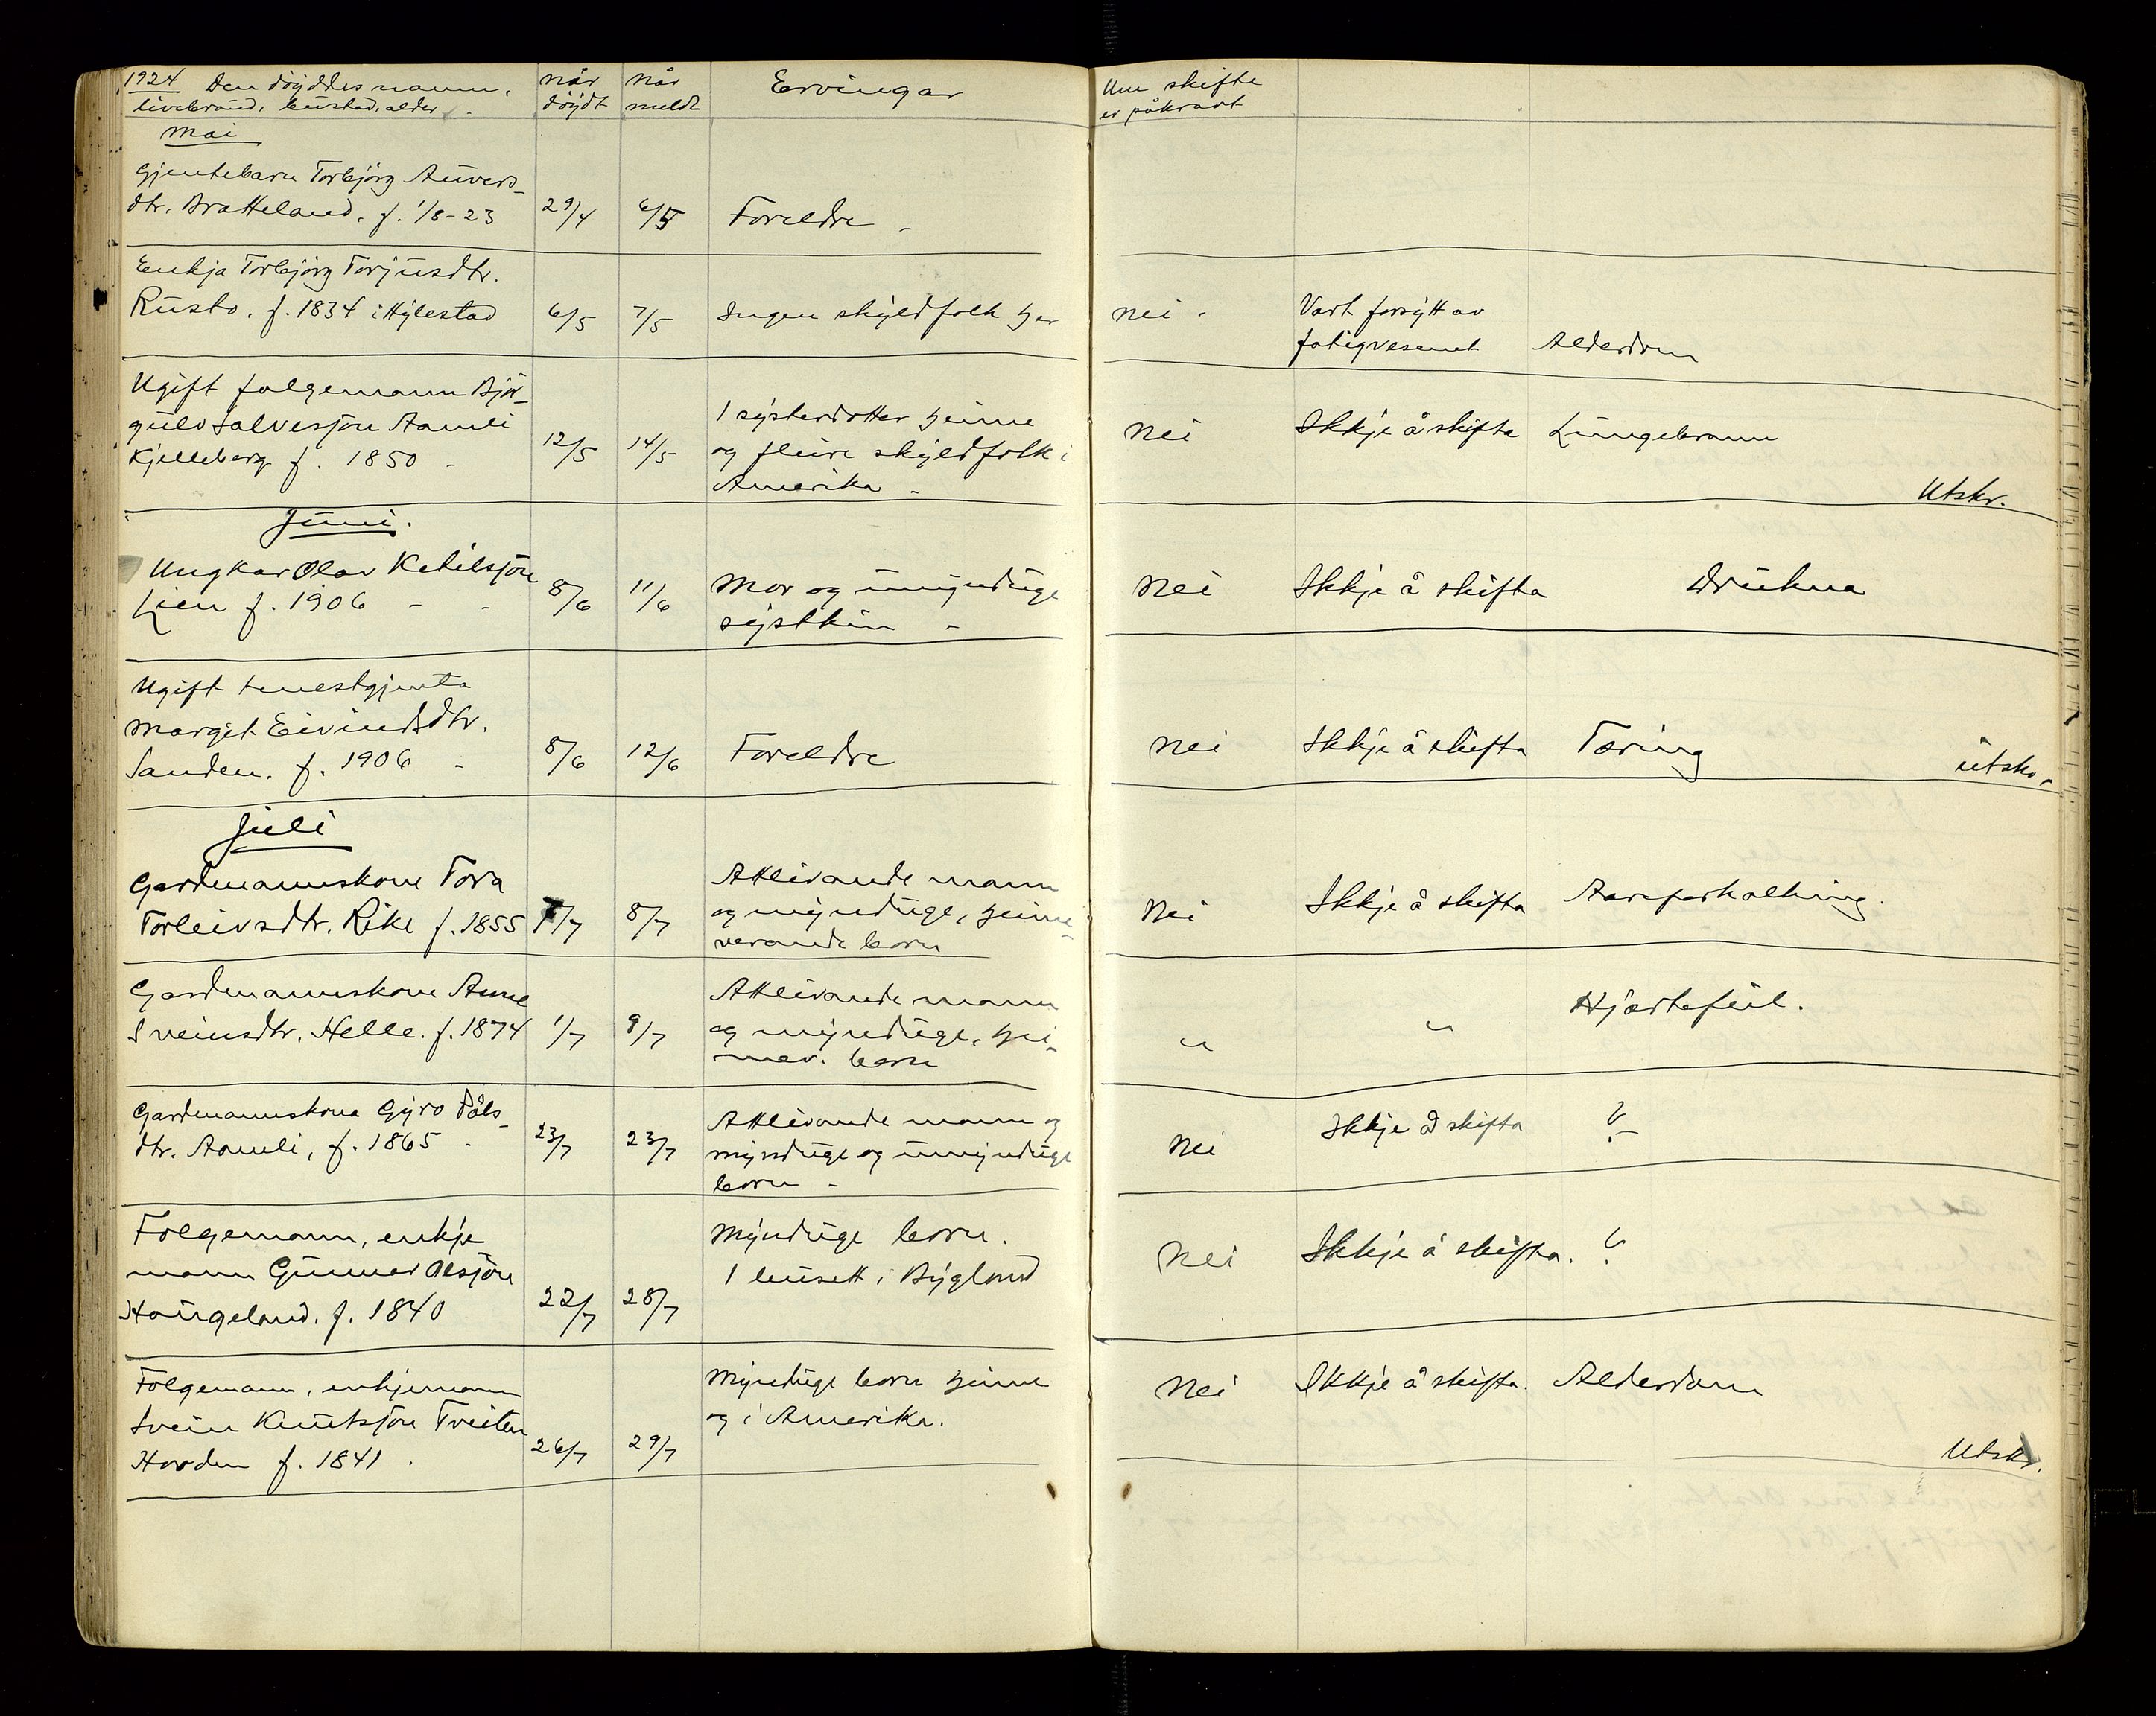 1924 Den döyddes namn, når når Ervingar Um skifte
livebraud, bustad, alder döydt meldt er påkravt
Mai
Gjentebarn Torbjörg Anvers-
dtr. Bratteland. f. 1/8-23 29/4 6/5 Foreldre -
Enkja Torbjörg Torjusdtr.
Rusto. f. 1834 i Hylestad 6/5 7/5 Ingen skyldfolk her nei. Vart forsytt av
fatigvesenet Alderdom
Ugift folgemann Björ-
gulv Salvesson Aamli 1 systerdotter heime
Kjelleberg f. 1850 - 12/5 14/5 og fleire skyldfolk i nei Ikkje å skifta Lungebrann
Amerika - Utskr.
Juni.
Ungkar Olav Ketilsson
Lien f. 1906 - - 8/6 11/6 Mor og umyndige Nei Ikkje å skifta Drukna
systkin -
Ugift tenestgjenta
Margit Eivindsdtr.
Sanden. f. 1906 - 8/6 12/6 Foreldre Nei Ikkje å skifta Tæring utskr.
Juli
Gardmannskone Tora Attlivande mann
Torleivsdtr. Rike f. 1855 7/7 8/7 og mynduge, heime- Nei Ikkje å skifta Aareforkalking.
verande born
Gardmannskone Anne Attlivande mann
Sveinsdtr. Helle. f. 1874 1/7 9/7 og mynduge, hei- " " Hjærtefeil.
mev. born
Gardmannskona Gyro Påls- Attlivande mann og
dtr. Aamli, f. 1865 - 23/7 23/7 mynduge og umynduge Nei Ikkje å skifta ?
born -
Folgemann, enkje Mynduge born.
mann Gunnar Olsson 1 busett i Bygland Nei Ikkje å skifta. ?
Haugeland. f. 1840 22/7 28/7
Folgemann, enkjemann Mynduge born heime Nei Ikkje å skifta. Alderdom
Svein Knutsson Tveiten og i Amerika.
Hovden f. 1841. 26/7 29/7 Utskr.